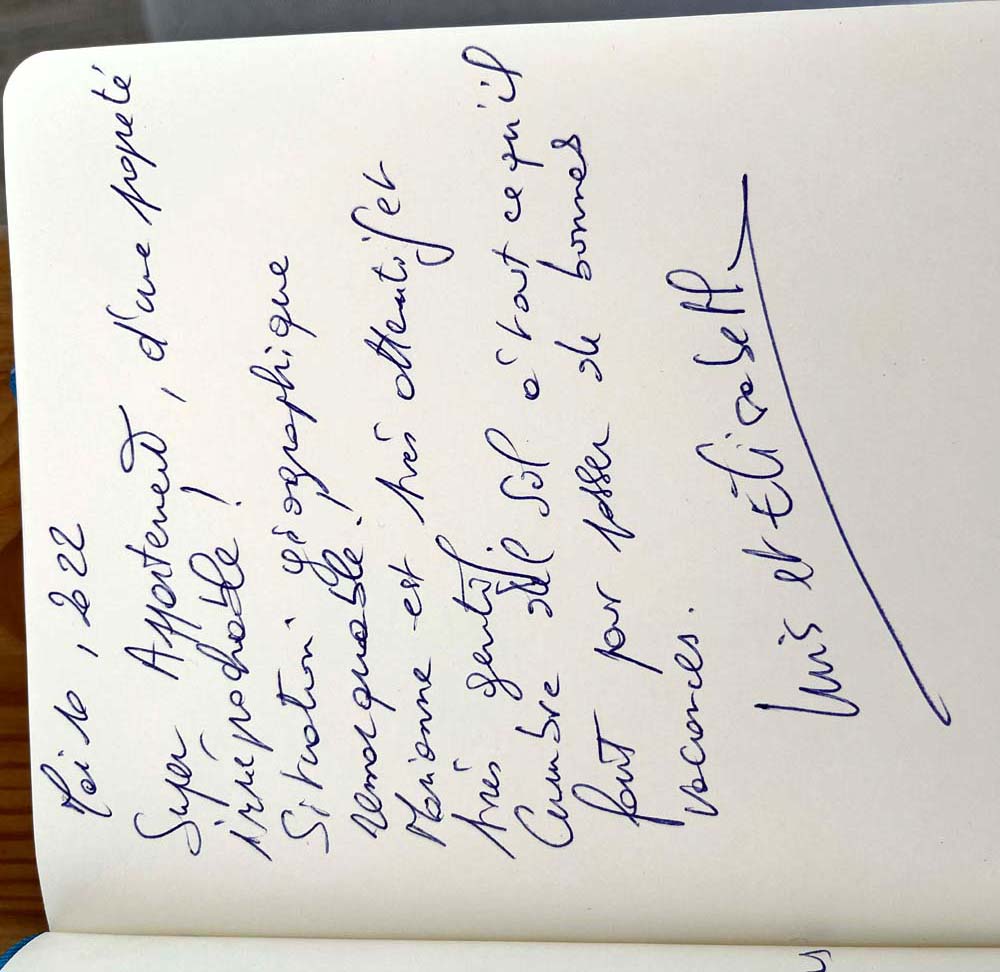 Mai 10, 2022
Super Appartement, d'une propeté
irréprochable !
Situation géographique
remarquable !
Marianne est très attentif et
très gentil
Cumbre del Sol a tout ce qu'il
faut pour passer de bonnes
vacances.
Luis et Elisabeth